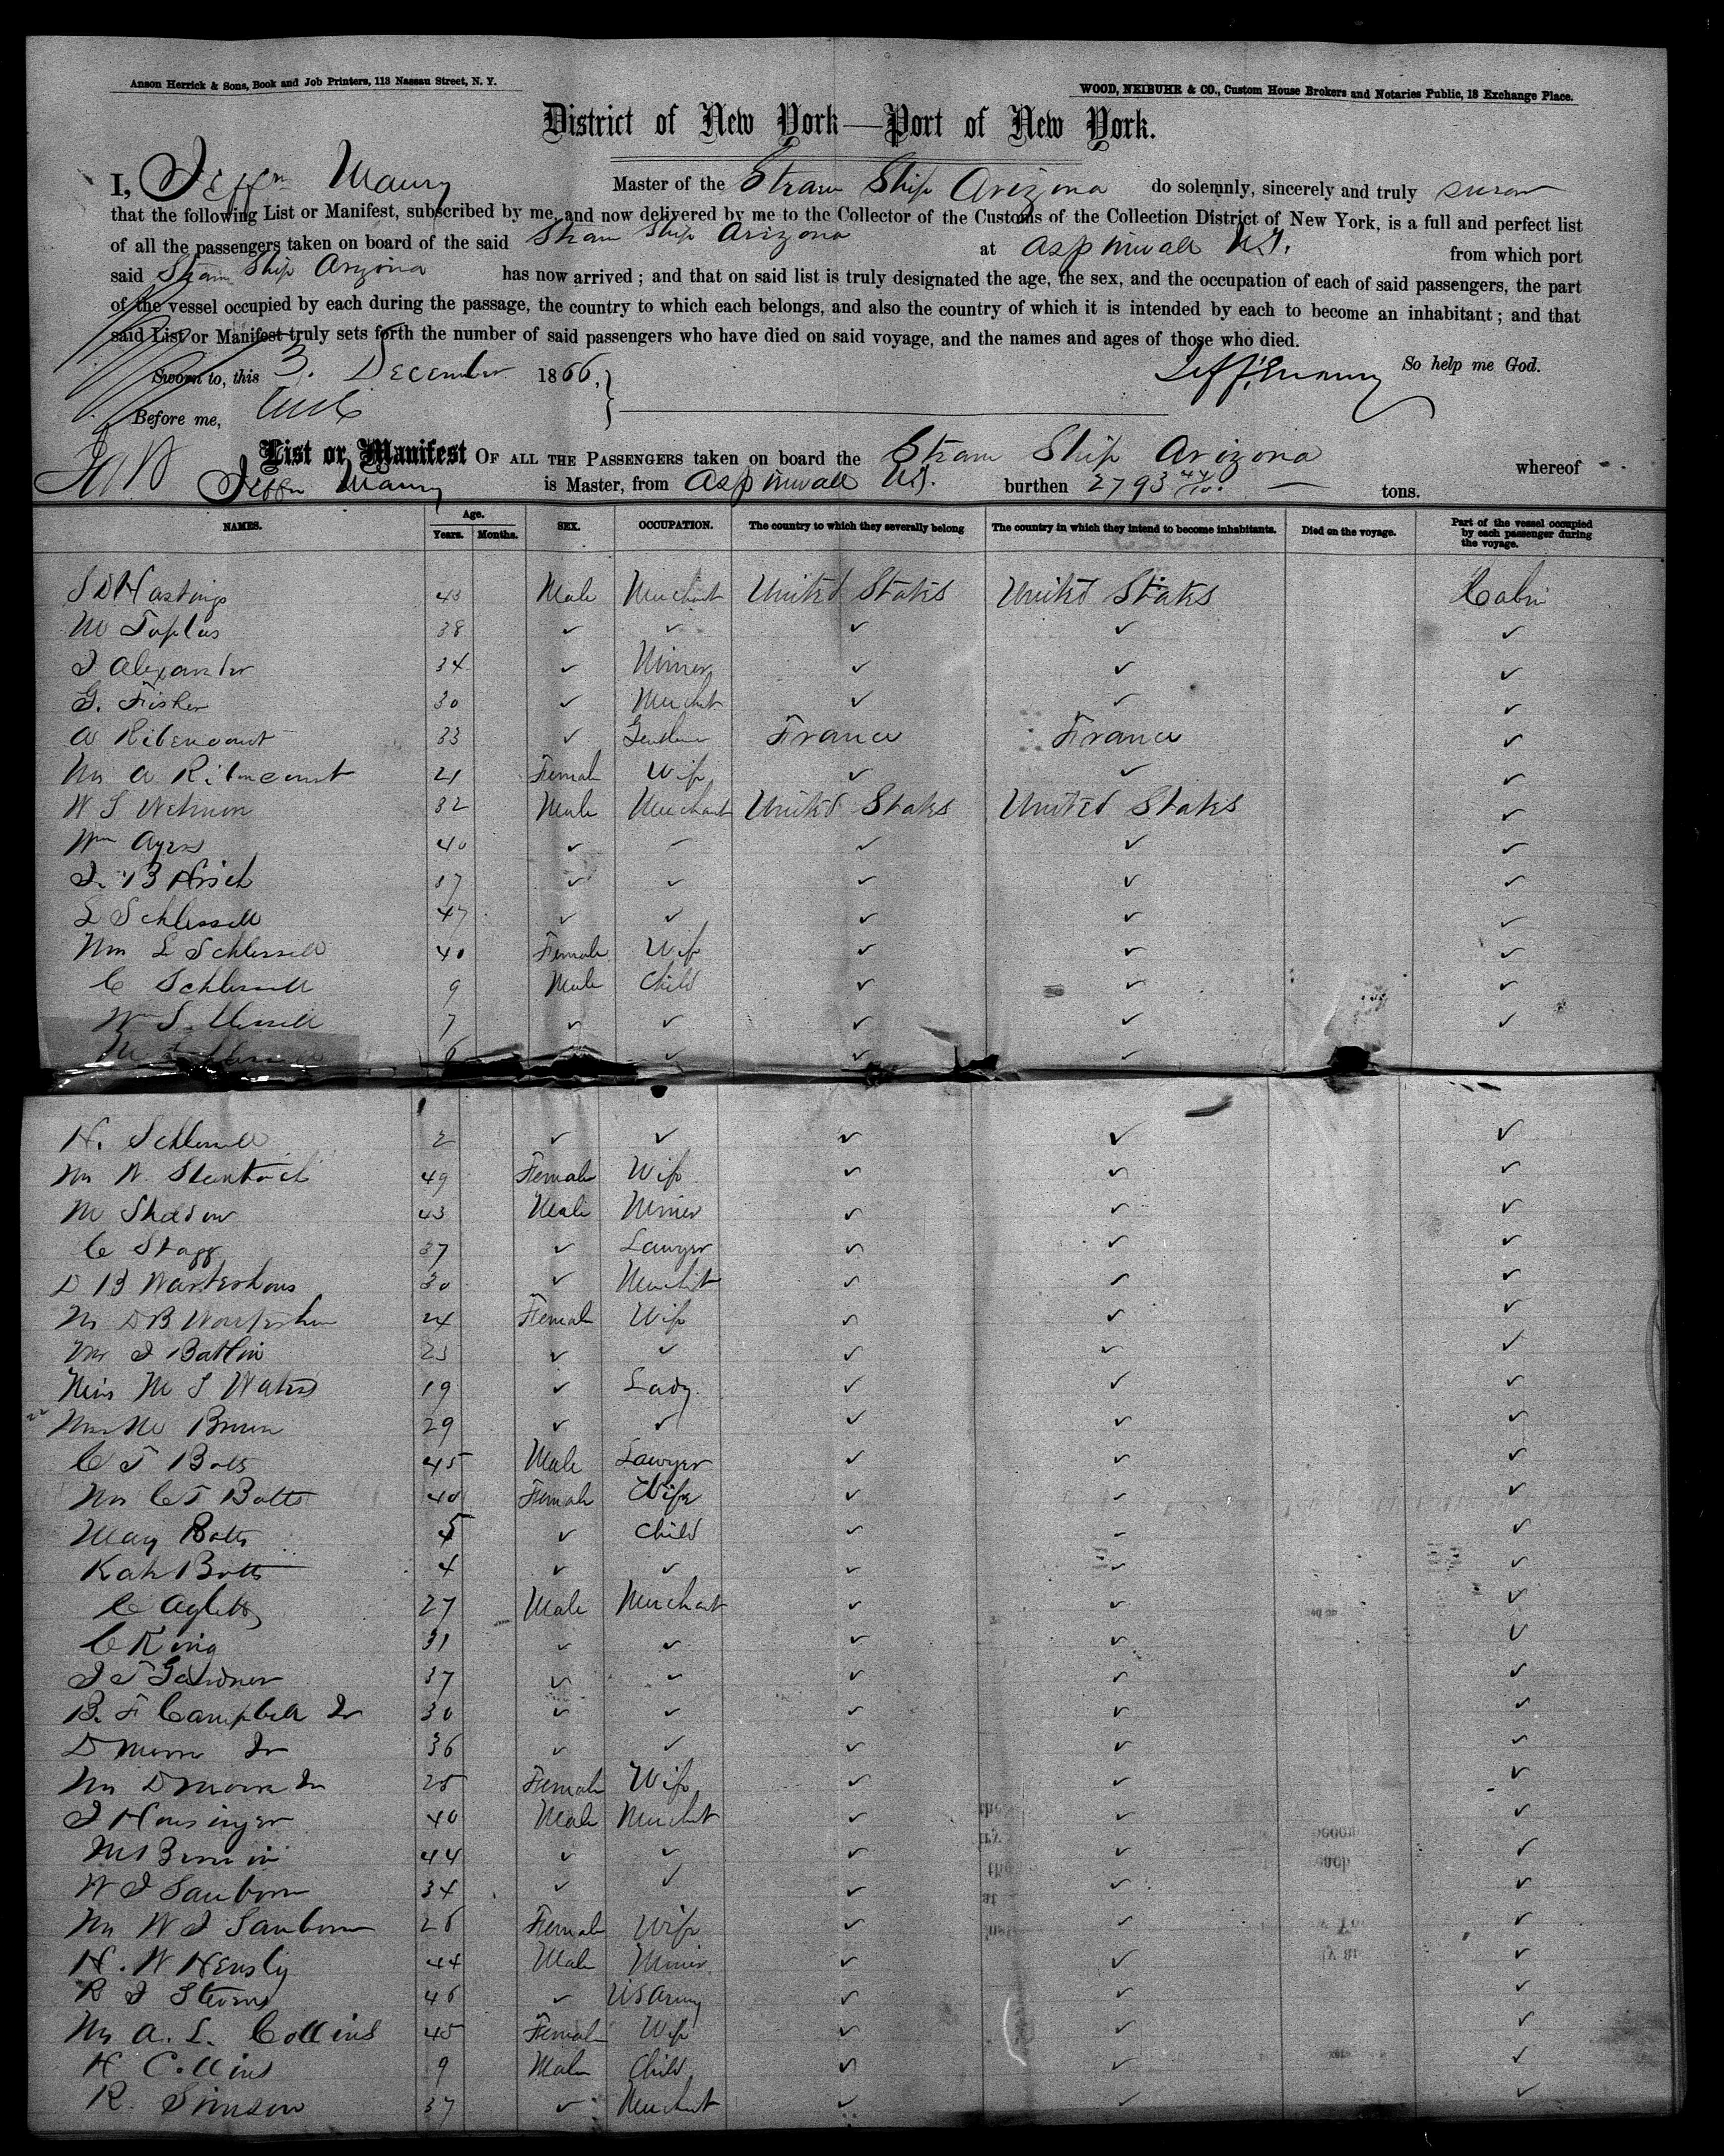 Anson Herrick & Sons, Book and Job Printers, 113 Nassau Street, N. Y.
WOOD, NEIBUHR & CO., Custom House Brokers and Notaries Public, 18 Exchange Place.
District of New York—Port of New York.
I, Jeffn Maury Master of the Steam Ship Arizona do solemnly, sincerely and truly swear
that the following List or Manifest, subscribed by me, and now delivered by me to the Collector of the Customs of the Collection District of New York, is a full and perfect list
of all the passengers taken on board of the said Steam Ship Arizona at Aspinwall from which port
said Steam Ship Arizona has now arrived; and that on said list is truly designated the age, the sex, and the occupation of each of said passengers, the part
of the vessel occupied by each during the passage, the country to which each belongs, and also the country of which it is intended by each to become an inhabitant; and that
said List or Manifest truly sets forth the number of said passengers who have died on said voyage, and the names and ages of those who died.
Sworn to, this 3. December 1866, So help me God.
Jeff. Maury
Before me,
List or Manifest OF ALL THE PASSENGERS taken on board the Steam Ship Arizona whereof
Jeffn Maury is Master, from Aspinwall burthen 2793 tons.
NAMES. Age. Years. Months. SEX. OCCUPATION. The country to which they severally belong The country in which they intend to become inhabitants. Died on the voyage. Part of the vessel occupied by each passenger during the voyage.
S D Hastings 43 Male Merchant United States United States Cabin
M 38 ✓ ✓ ✓ ✓ ✓
J Alexander 34 ✓ Miner ✓ ✓ ✓
G. Fisher 30 ✓ Merchant ✓ ✓ ✓
A Ribencourt 33 ✓ Gentleman France France ✓
Mrs A Ribencourt 21 Female Wife ✓ ✓ ✓
W S 32 Male Merchant United States United States ✓
Wm Ayres 40 ✓ ✓ ✓ ✓ ✓
J. B Hirsch 37 ✓ ✓ ✓ ✓ ✓
L Schlessell 47 ✓ ✓ ✓ ✓ ✓
Mrs L Schlessell 40 Female Wife ✓ ✓ ✓
C Schlessell 9 Male Child ✓ ✓ ✓
Wm Schlessell 7 ✓ ✓ ✓ ✓ ✓
M Schlessell 6 ✓ ✓ ✓
H. Schlessell 2 ✓ ✓ ✓ ✓ ✓
Mrs W. 49 Female Wife ✓ ✓ ✓
M Shadow 43 Male Miner ✓ ✓ ✓
C Stagg 37 ✓ Lawyer ✓ ✓ ✓
D B 30 ✓ Merchant ✓ ✓ ✓
Mrs D B 24 Female Wife ✓ ✓ ✓
Mrs J Batlin 23 ✓ ✓ ✓ ✓ ✓
Miss M S Waters 19 ✓ Lady ✓ ✓ ✓
Mrs M Brown 29 ✓ ✓ ✓ ✓ ✓
C T Botts 45 Male Lawyer ✓ ✓ ✓
Mrs C T Botts 40 Female Wife ✓ ✓ ✓
Mary Botts 5 ✓ Child ✓ ✓ ✓
Kate Botts 4 ✓ ✓ ✓ ✓ ✓
C Aglett 27 Male Merchant ✓ ✓ ✓
C King 31 ✓ ✓ ✓ ✓ ✓
J T Gardner 37 ✓ ✓ ✓ ✓ ✓
B. F Campbell Jr 30 ✓ ✓ ✓ ✓ ✓
D Jr 36 ✓ ✓ ✓ ✓ ✓
Mrs D Jr 25 Female Wife ✓ ✓ ✓
J Honsinger 40 Male Merchant ✓ ✓ ✓
M 44 ✓ ✓ ✓ ✓ ✓
W J Sanborn 34 ✓ ✓ ✓ ✓ ✓
Mrs W J Sanborn 26 Female Wife ✓ ✓ ✓
H. W Hensly 44 Male Miner ✓ ✓ ✓
R J Stevens 46 ✓ US Army ✓ ✓ ✓
Mrs A. L. Collins 45 Female Wife ✓ ✓ ✓
H Collins 9 Male Child ✓ ✓ ✓
R. Simson 37 ✓ Merchant ✓ ✓ ✓